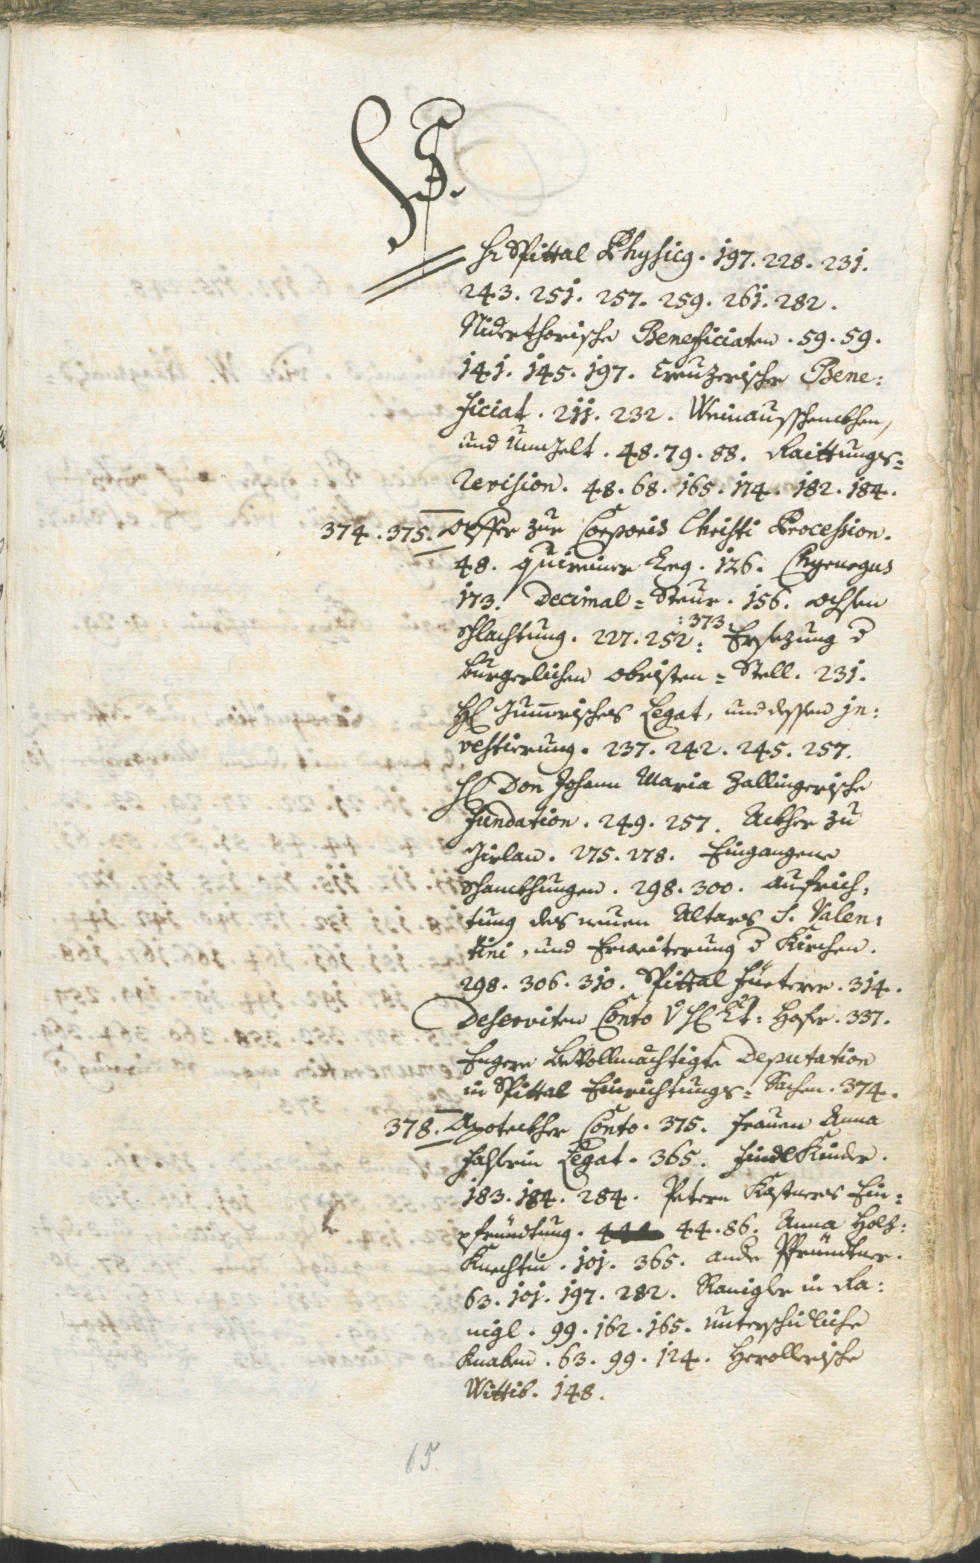 S.
H Spittal Physicg. 197. 228. 231.
243. 251. 257. 259. 261. 282.
Niderthorische Beneficiaten. 59. 59.
141. 145. 197. Creuzerische Bene:
ficiat. 211. 232. Weinausschenckhen,
und Umgelt. 48. 79. 88. Raittungs=
revision. 48. 68. 165. 174. 182. 184.
374. 375. Opffer zur Corporis Christi Procession.
48. Quireiner Berg. 126.
173. Decimal=Steur. 156. Ochsen
schlachtung. 227. 252: :373. Ersezung d
burgerlichen Obristen=Stell. 231.
H Legat, und dessen in:
vestierung. 237. 242. 245. 257.
H Don Johann Maria Zallingerische
fundation. 249. 257. Ackher zu
Girlan. 275. 278. Eingangene
Schanckhungen. 298. 300. Aufrich:
tung des neuen Altars S. Valen:
tini, und Erweiterung d Kirchen.
298. 306. 310. Spittal fueterer. 314.
Deserviten Conto V H Hofer. 337.
Engere bevollmächtigte Deputation
in Spittal Einrichtungs=Sachen. 374.
378. Apoteckher Conto. 375. Frauen Anna
Legat. 365. Findl Kinder.
183. 184. 284. Petern Kastners Ein=
pfründtung. 44. 86. Anna Holz:
Knechtin. 101. 365. ande Pfründtner.
63. 101. 197. 282. Ranigler in Ra:
nigl. 99. 162. 165. Unterschidliche
Knaben. 63. 99. 124. Herollerische
Wittib. 148.
65.